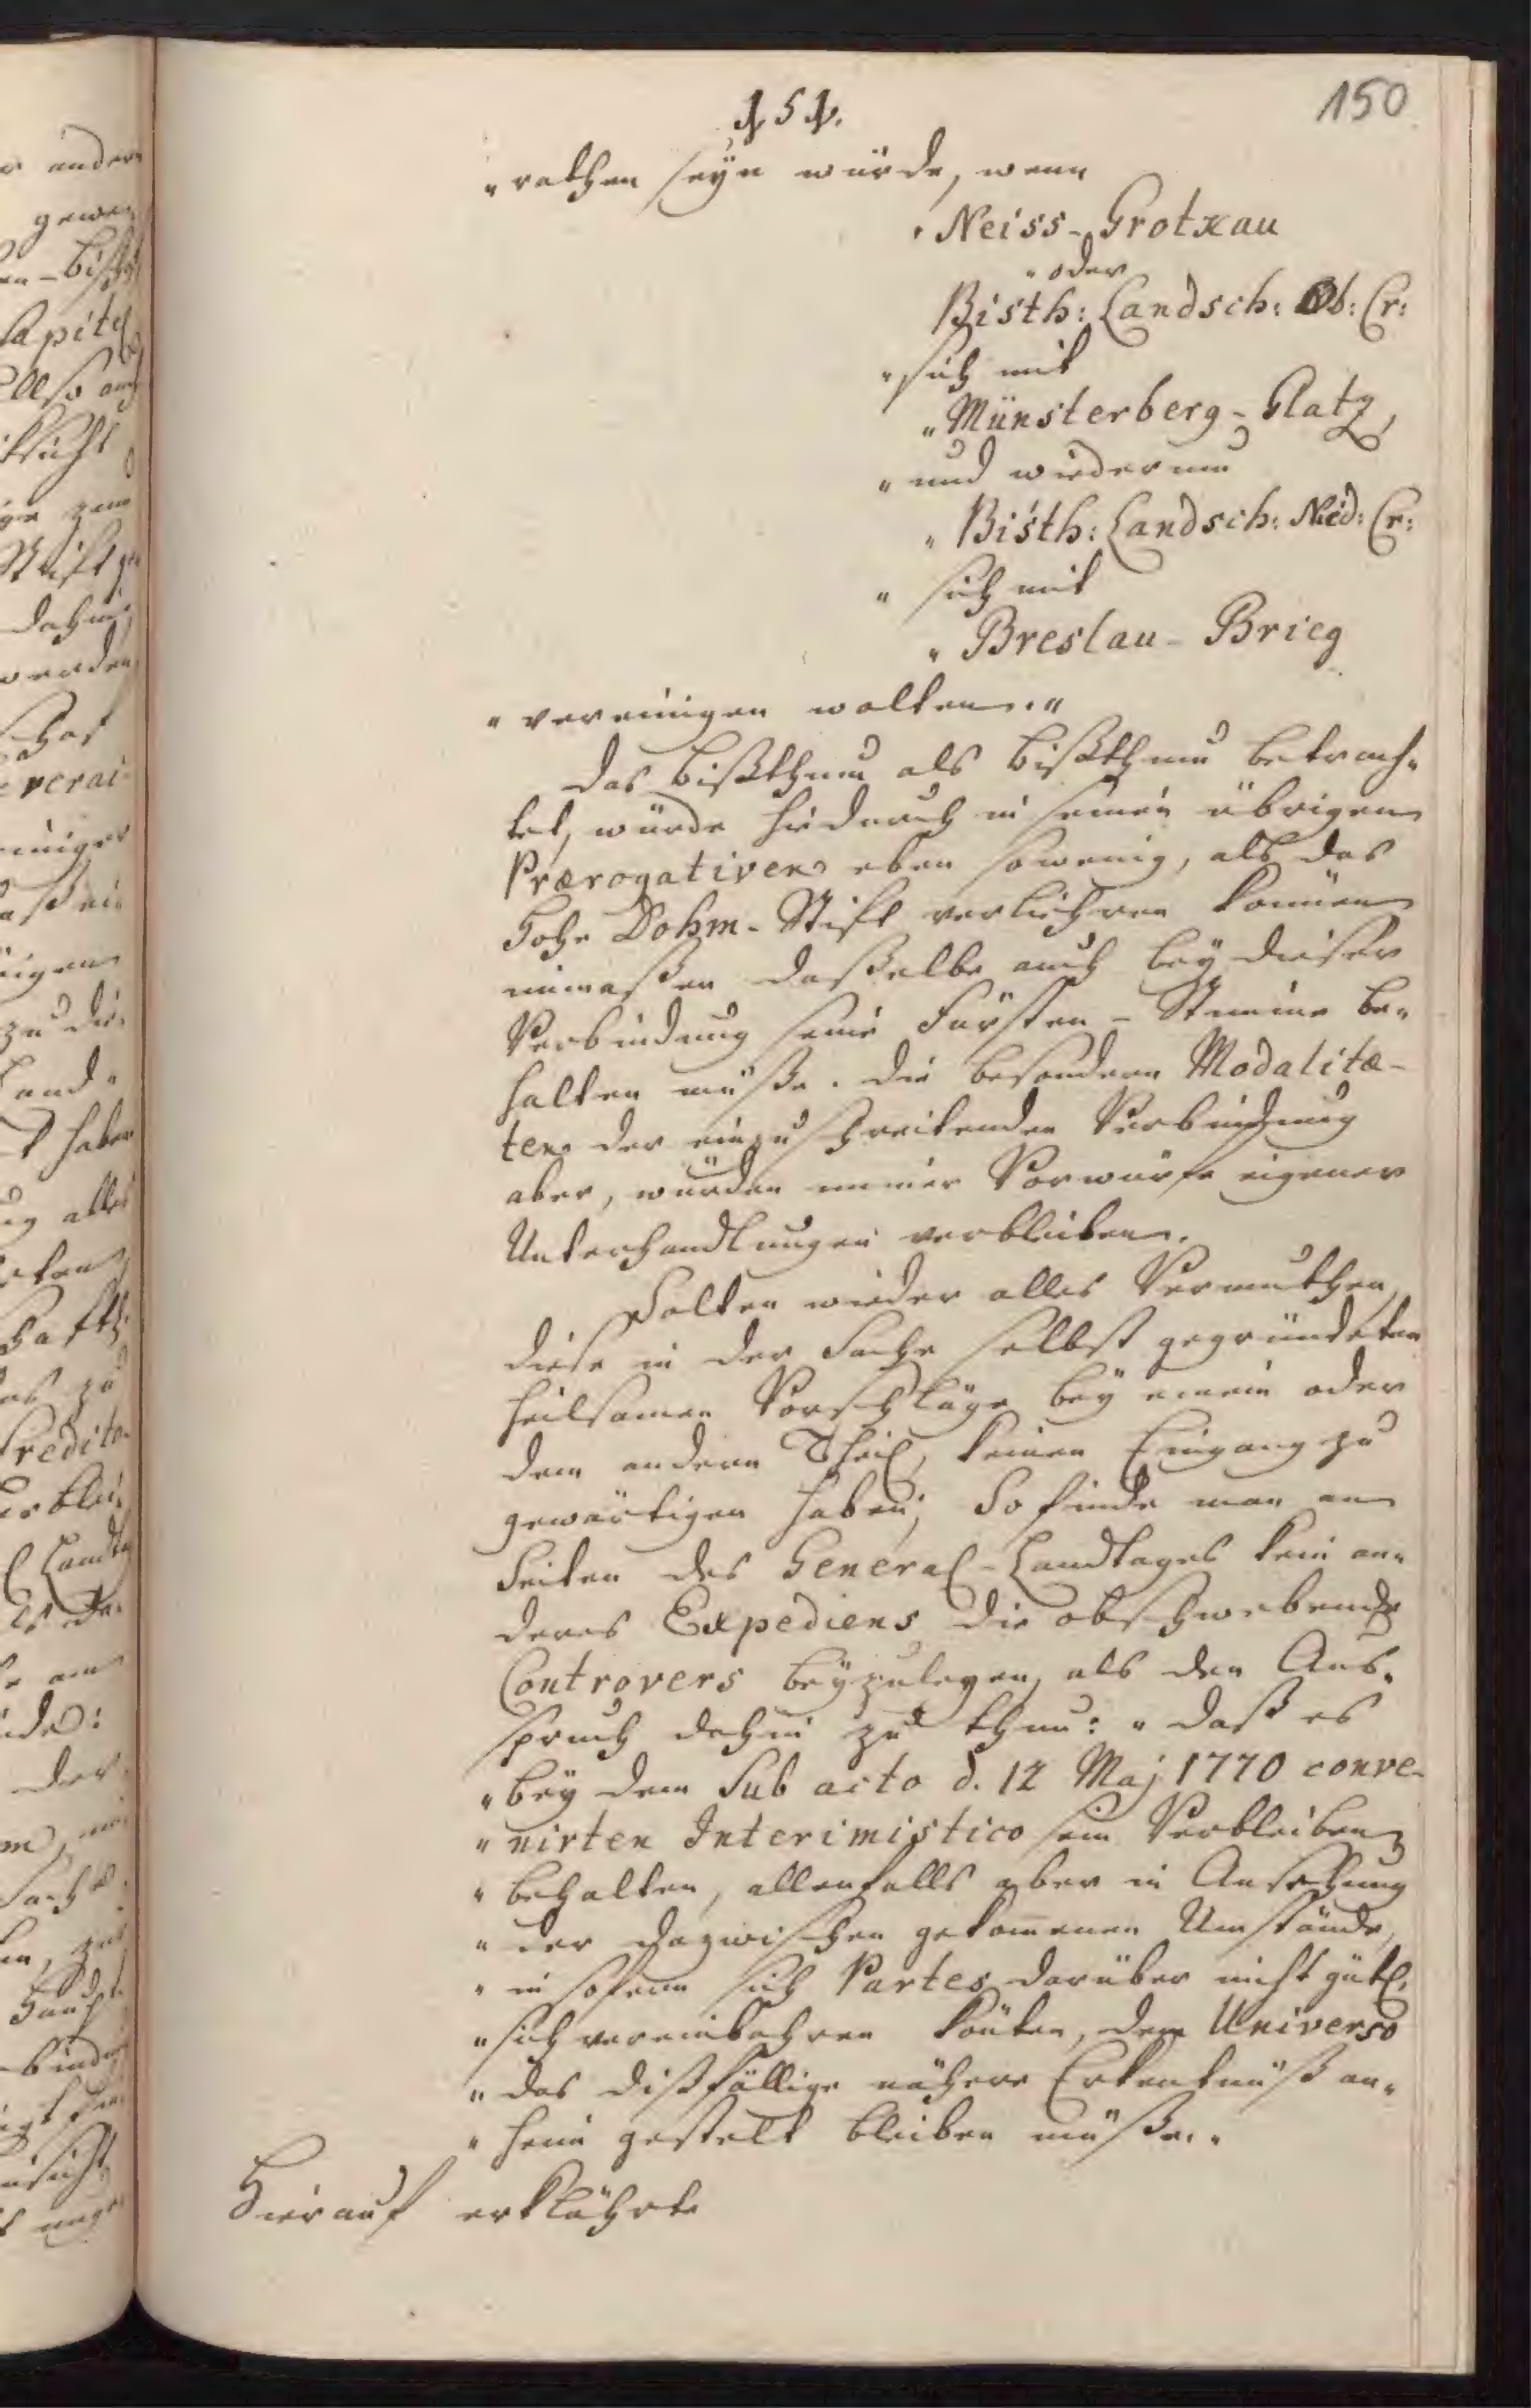 150
5
"rathen seÿn würde, wenn
"Neiss-Grotkau
"oder
Bisth: Landsch: Ob: Cr:
"sich mit
"Münsterberg-Glatz,
"und wiederum
"Bisth: Landsch: Nied: Cr:
"sich mit
"Breslau-Brieg
"vereinigen wolten."
Das Bißthum als Bißthum betrach-
tet, würde hiedurch in seinen übrigen
Prærogativen eben sowenig, als das
Hohe Dohm-Stift verliehren können
immaßen daßelbe auch beÿ dieser
Verbindung seine Fürsten-Stimme be-
halten müße. Die besondern Modalitæ-
ten der einzuschreitenden Verbindung
aber, würden immer Vorwürfe eigener
Unterhandlungen verbleiben.
Solten wieder alles Vermuthen,
diese in der Sache selbst gegründeten
heilsamen Vorschläge beÿ einem oder
dem andern Theil, keinen Eingang zu
gewärtigen haben; So finde man an
Seiten des General-Landtages kein an-
deres Expediens die obschwebende
Controvers beÿzulegen, als den Aus-
spruch dahin zu thun: "daß es
"beÿ dem sub acto d. 12 Maj 1770 conve-
"nirten Interimistico sein Verbleiben
"behalten, allenfalls aber in Ansehung
"der dazwischen gekom̅enen Umstände,
"in sofern sich Partes darüber nicht gütl.
"sich vereinbahren könten, dem Universo
"das dißfällige nähere Erkentnüß an-
"heim gestelt bleiben müße."
Hierauf erklährte